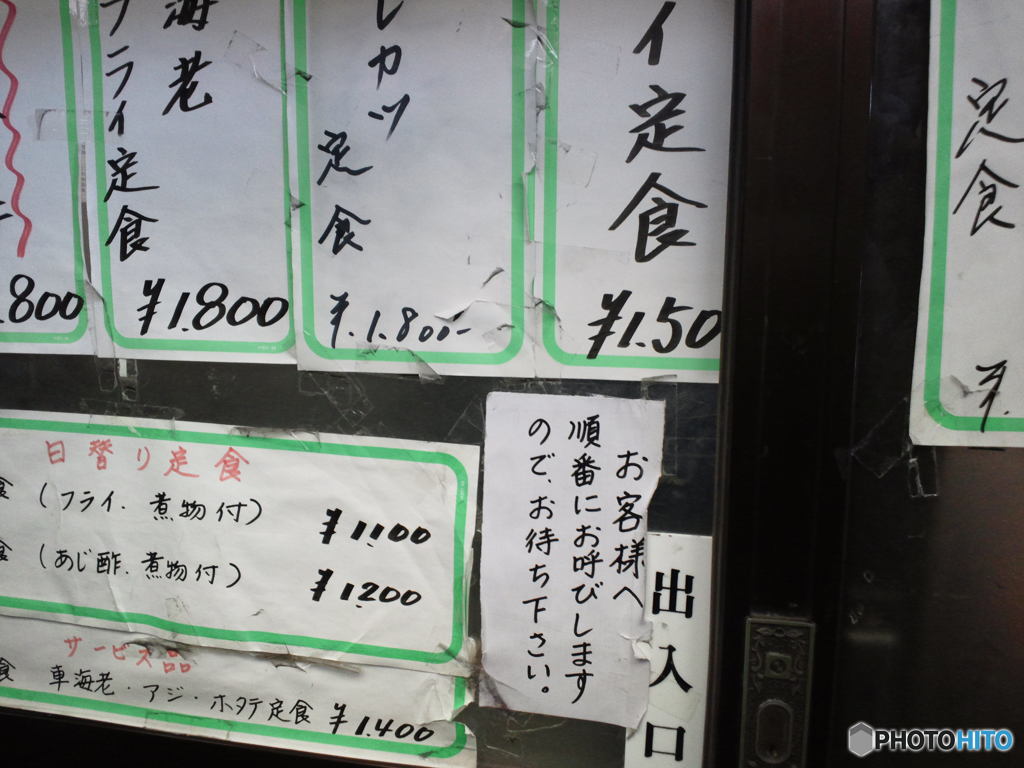 定食
¥.
イ定食
¥1.50
レカツ
定食
¥.1.800-
海老
フライ定食
¥1.800
.800
日替り定食
食 (フライ.煮物付)
¥1100
食 (あじ酢.煮物付)
¥1200
サービス品
食 車海老・アジ・ホタテ定食 ¥1.400
お客様へ
順番にお呼びします
ので、お待ち下さい。
出入口
PHOTOHITO